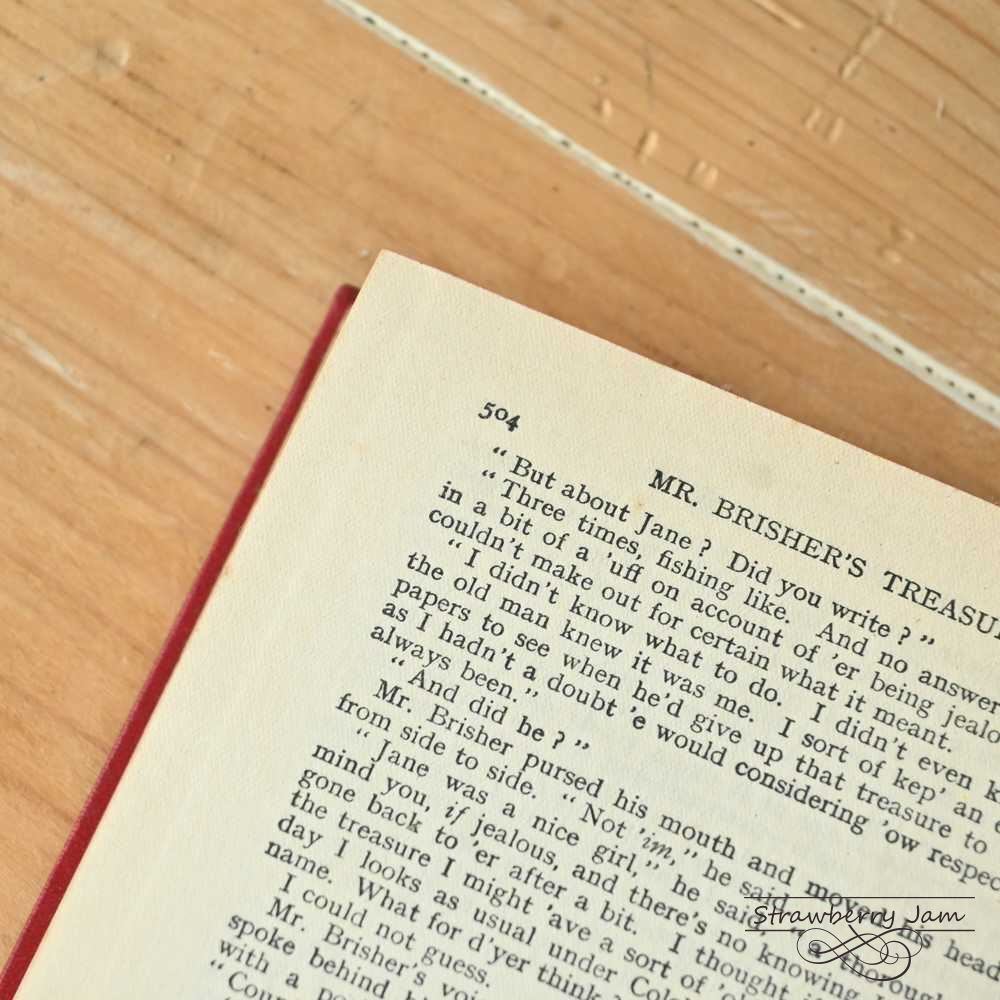 504
MR. BRISHER'S TREASU
“ But about Jane ? Did you write ? ”
“ Three times, fishing like. And no answer
in a bit of a 'uff on account of 'er being jealo
couldn't make out for certain what it meant.
“ I didn't know what to do. I didn't even k
the old man knew it was me. I sort of kep' an
papers to see when he'd give up that treasure to
as I hadn't a doubt 'e would considering 'ow respec
always been.”
“ And did he ? ”
Mr. Brisher pursed his mouth and moved his head
from side to side. “ Not 'im,” he said.
“ Jane was a nice girl,” he said, “ a thorou
mind you, if jealous, and there's no knowing
gone back to 'er after a bit. I thought i
the treasure I might 'ave a sort of 'o
day I looks as usual under Colc
name. What for d'yer think
I could not guess.
Mr. Brisher's voi
spoke behind hi
with a po
“ Coun
Strawberry Jam